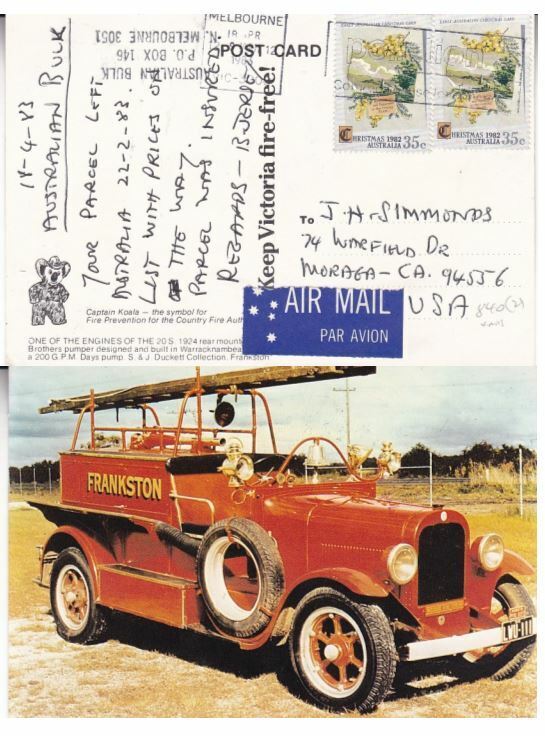 POST CARD
MELBOURNE
18 APR
AUSTRALIAN BULK
P.O. BOX 146
N. MELBOURNE 3051
18-4-83
AUSTRALIAN BULK
YOUR PARCEL LEFT
AUSTRALIA 22-2-83.
LIST WITH PRICES ON
THE WAY.
PARCEL WAS INSURED
REGARDS - BJERNE
Keep Victoria fire-free!
EARLY AUSTRALIAN CHRISTMAS CARD
CHRISTMAS 1982
AUSTRALIA 35c
EARLY AUSTRALIAN CHRISTMAS CARD
CHRISTMAS 1982
AUSTRALIA 35c
TO J.H. SIMMONDS
74 WARFIELD DR
MORAGA - CA. 94556
USA
AIR MAIL
PAR AVION
Captain Koala — the symbol for
Fire Prevention for the Country Fire Auth
ONE OF THE ENGINES OF THE 20 S. 1924 rear mount
Brothers pumper designed and built in Warracknambea
a 200 G.P.M. Days pump. S. & J. Duckett Collection. Frankston
FRANKSTON